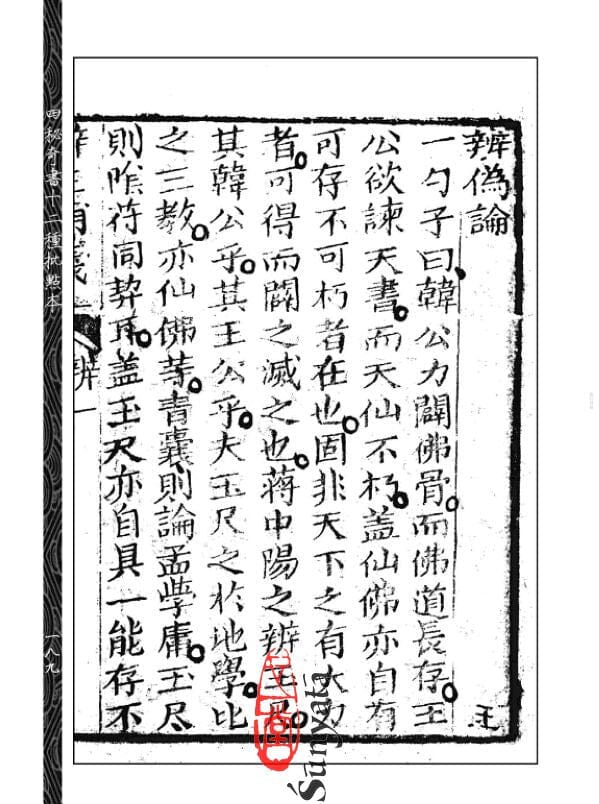 辨偽論
一勺子曰韓公力闢佛骨而佛道長存王
公欲諫天書而天仙不朽蓋仙佛亦自有
可存不可朽者在也固非天下之有大力
者可得而闢之滅之也蔣中陽之辨玉尺
其韓公乎其王公乎夫玉尺之於地學比
之三教亦仙佛等青囊則論孟學庸玉尺
則陰符同契耳盖玉尺亦自具一能存不
辨一
四秘全書十二種批點本
一八九
Śūnyatā